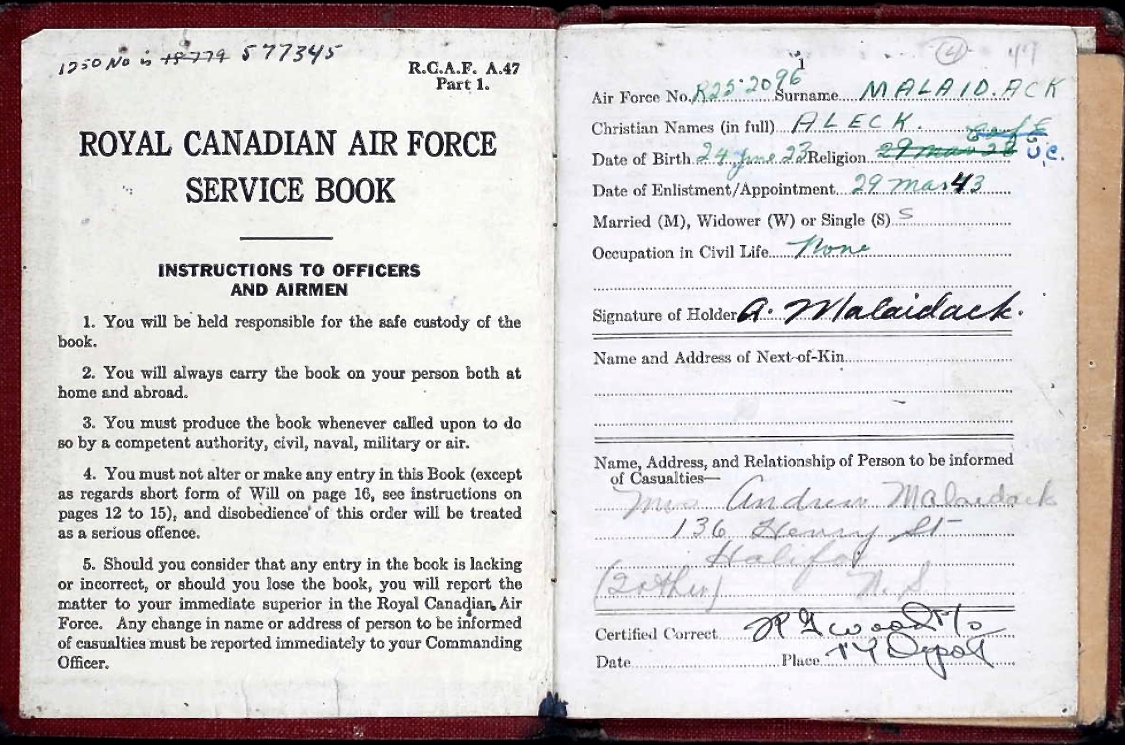 1250 No is 18779 577345
R.C.A.F. A.47
Part 1.
ROYAL CANADIAN AIR FORCE
SERVICE BOOK
INSTRUCTIONS TO OFFICERS
AND AIRMEN
1. You will be held responsible for the safe custody of the
book.
2. You will always carry the book on your person both at
home and abroad.
3. You must produce the book whenever called upon to do
so by a competent authority, civil, naval, military or air.
4. You must not alter or make any entry in this Book (except
as regards short form of Will on page 16, see instructions on
pages 12 to 15), and disobedience of this order will be treated
as a serious offence.
5. Should you consider that any entry in the book is lacking
or incorrect, or should you lose the book, you will report the
matter to your immediate superior in the Royal Canadian Air
Force. Any change in name or address of person to be informed
of casualties must be reported immediately to your Commanding
Officer.
4 49
1
Air Force No. R252096 Surname MALAIDACK
Christian Names (in full) ALECK.
Date of Birth 24 June 23 Religion U.C.
Date of Enlistment/Appointment 29 Mar 43
Married (M), Widower (W) or Single (S) S
Occupation in Civil Life None
Signature of Holder A. Malaidack.
Name and Address of Next-of-Kin
Name, Address, and Relationship of Person to be informed
of Casualties—
Mrs Andrew Malaidack
136 Henry St
Halifax
N.S.
Certified Correct
Date Place Depot